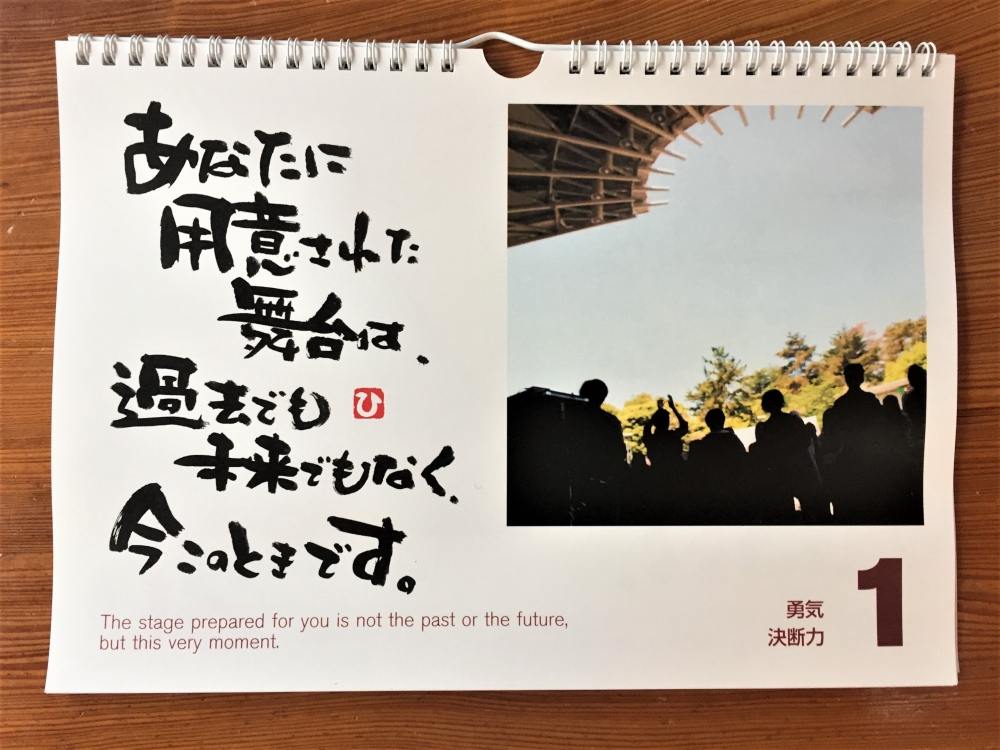 あなたに
用意された
舞台は、
過去でも
ひ
未来でもなく、
今このときです。
The stage prepared for you is not the past or the future,
but this very moment.
勇気
決断力
1